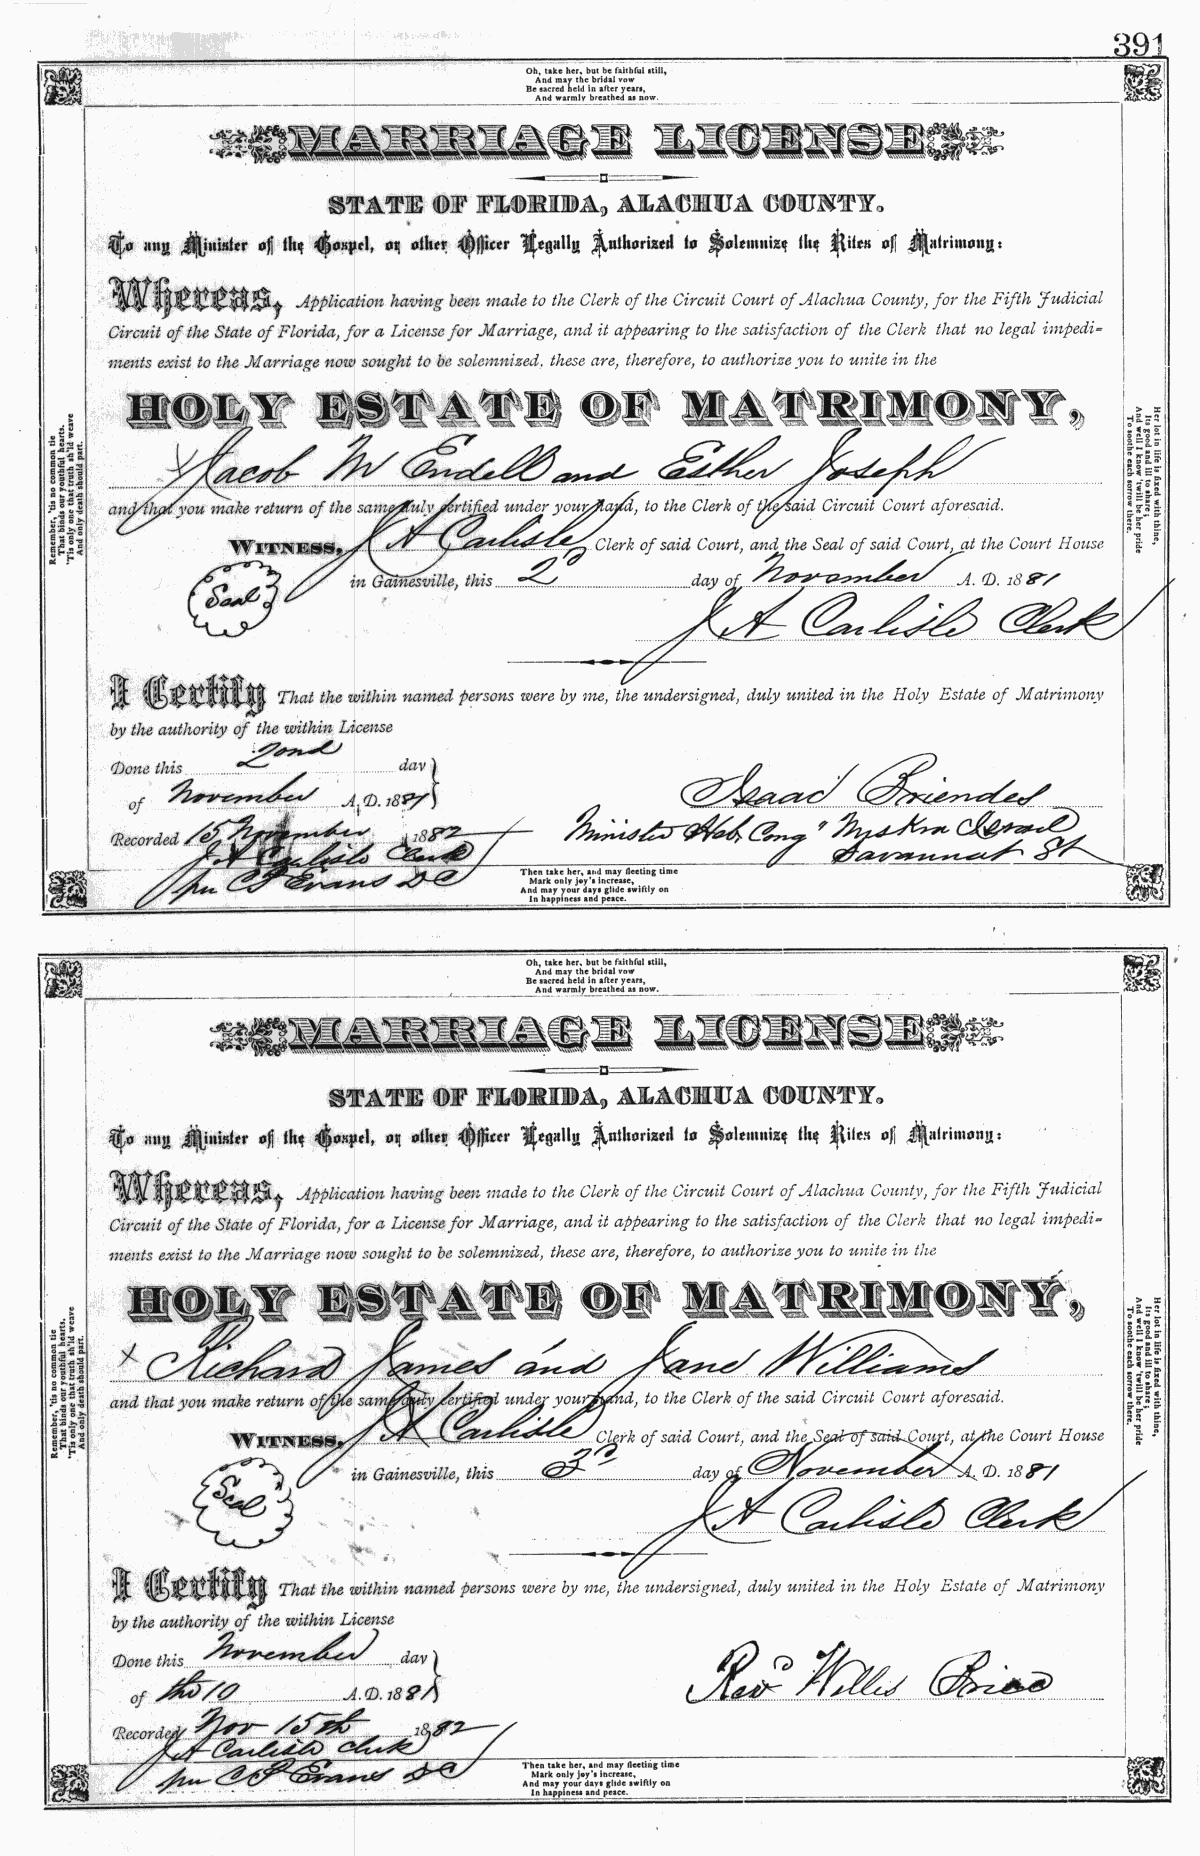 391
Oh, take her, but be faithful still,
And may the bridal vow
Be sacred held in after years,
And warmly breathed as now.
MARRIAGE LICENSE
STATE OF FLORIDA, ALACHUA COUNTY.
To any Minister of the Gospel, or other Officer Legally Authorized to Solemnize the Rites of Matrimony:
Whereas, Application having been made to the Clerk of the Circuit Court of Alachua County, for the Fifth Judicial
Circuit of the State of Florida, for a License for Marriage, and it appearing to the satisfaction of the Clerk that no legal impedi-
ments exist to the Marriage now sought to be solemnized, these are, therefore, to authorize you to unite in the
HOLY ESTATE OF MATRIMONY,
Jacob M Endell and Esther Joseph
and that you make return of the same duly certified under your hand, to the Clerk of the said Circuit Court aforesaid.
WITNESS, J A Carlisle Clerk of said Court, and the Seal of said Court, at the Court House
in Gainesville, this 2d day of November A. D. 1881
Seal
J A Carlisle Clerk
I Certify That the within named persons were by me, the undersigned, duly united in the Holy Estate of Matrimony
by the authority of the within License
Done this 2ond day
of November A. D. 1881
Isaac Briendes
Recorded 15 November 1882
Minister Heb. Cong
J A Carlisle Clerk
per C P Evans D C
Remember, 'tis no common tie
That binds our youthful hearts.
'Tis only one that truth sh'ld weave
And only death should part.
Her lot in life is fixed with thine,
Its good and ill to share;
And well I know 'twill be her pride
To soothe each sorrow there.
Then take her, and may fleeting time
Mark only joy's increase,
And may your days glide swiftly on
In happiness and peace.
Oh, take her, but be faithful still,
And may the bridal vow
Be sacred held in after years,
And warmly breathed as now.
MARRIAGE LICENSE
STATE OF FLORIDA, ALACHUA COUNTY.
To any Minister of the Gospel, or other Officer Legally Authorized to Solemnize the Rites of Matrimony:
Whereas, Application having been made to the Clerk of the Circuit Court of Alachua County, for the Fifth Judicial
Circuit of the State of Florida, for a License for Marriage, and it appearing to the satisfaction of the Clerk that no legal impedi-
ments exist to the Marriage now sought to be solemnized, these are, therefore, to authorize you to unite in the
HOLY ESTATE OF MATRIMONY,
x Richard James and Jane Williams
and that you make return of the same duly certified under your hand, to the Clerk of the said Circuit Court aforesaid.
WITNESS, J A Carlisle Clerk of said Court, and the Seal of said Court, at the Court House
in Gainesville, this 3d day of November A. D. 1881
Seal
J A Carlisle Clerk
I Certify That the within named persons were by me, the undersigned, duly united in the Holy Estate of Matrimony
by the authority of the within License
Done this November day
of the 10 A. D. 1881
Revd Willis Brice
Recorded Nov 15th 1882
J A Carlisle clerk
per C P Evans D C
Remember, 'tis no common tie
That binds our youthful hearts.
'Tis only one that truth sh'ld weave
And only death should part.
Her lot in life is fixed with thine,
Its good and ill to share;
And well I know 'twill be her pride
To soothe each sorrow there.
Then take her, and may fleeting time
Mark only joy's increase,
And may your days glide swiftly on
In happiness and peace.